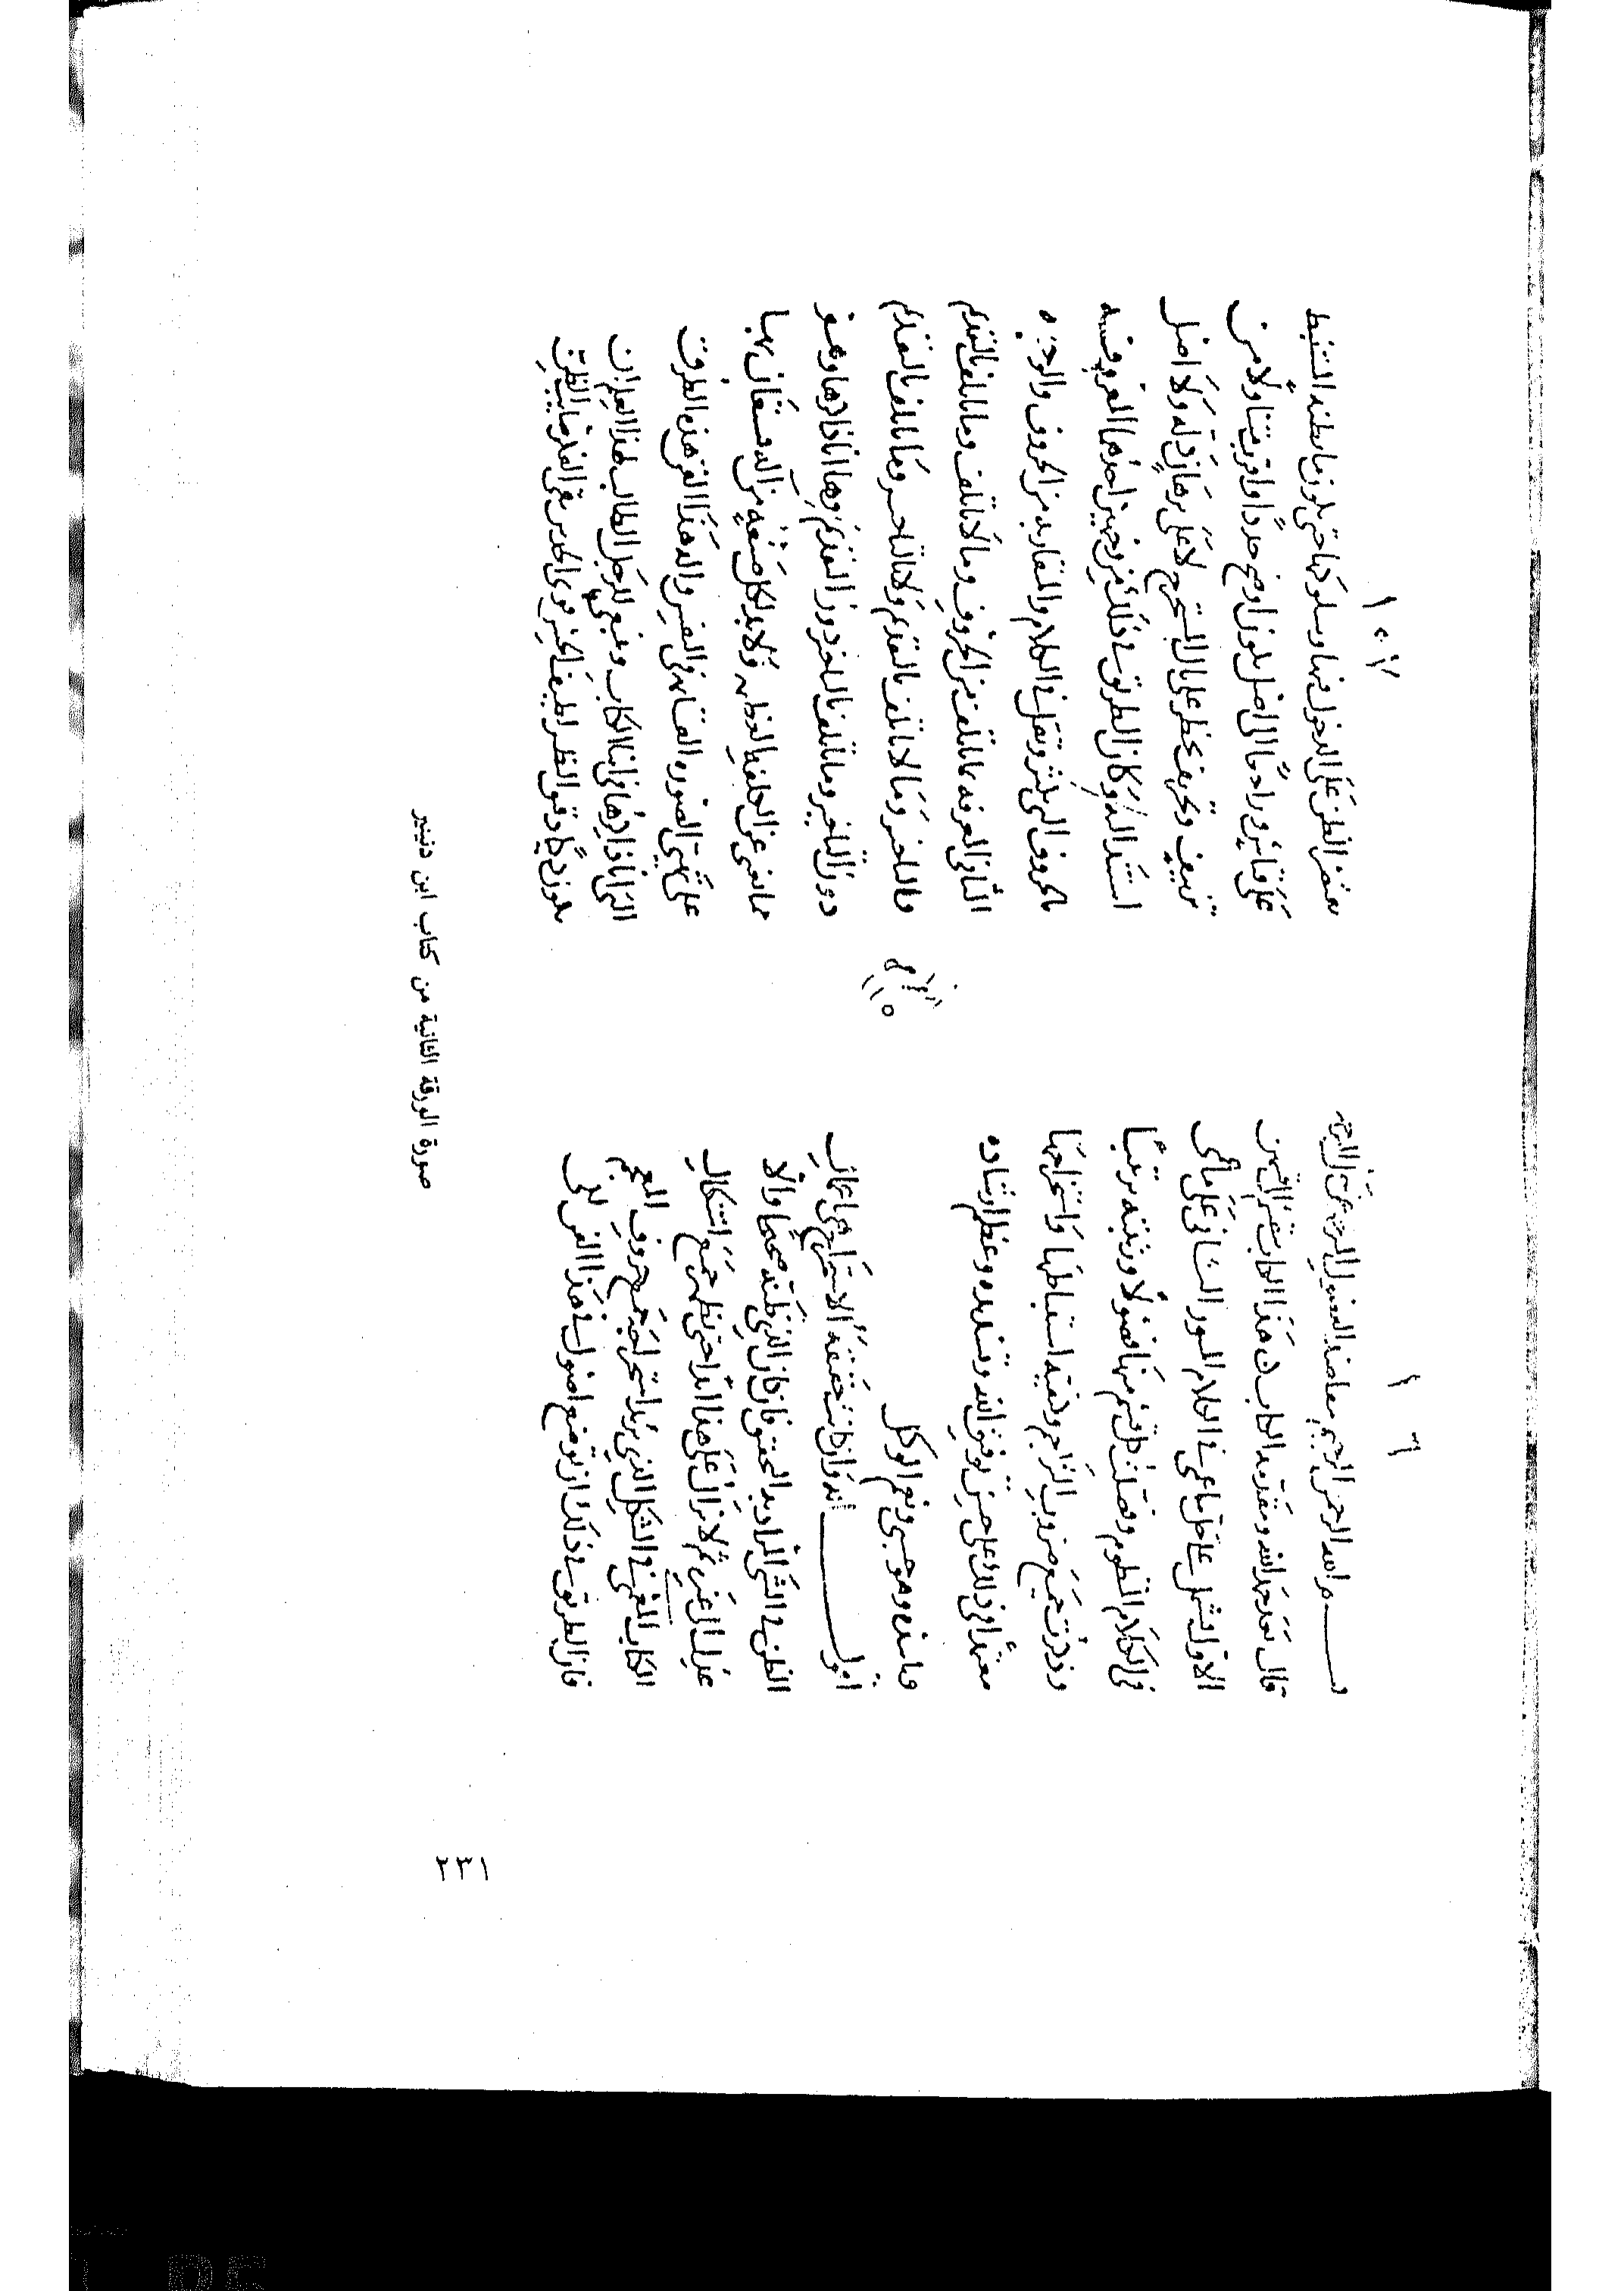 بسم الله الرحمن الرحيم
قال بعد حمد الله ومقدمة الكتاب ان هذا الكتاب ينقسم الى قسمين
الاول يشتمل على حل ما عمي في الكلام المنثور والثاني على ما عمي
في الكلام المنظوم وفصلت كل قسم منها فصولا ورتبته ترتيبًا
وذكرت جميع ضروب التراجم وكيفية استنباطها واستخراجها
معتمدا في ذلك على حسن توفيق الله وتسديده وعظيم ارشاده
واحسانه وهو حسبي ونعم الوكيل
اقول انه وان كانت حقيقة الاستخراج هي اعمال
الظن في الشي المراد به التحقق فان كان الذي ظننته صحيحًا والا
عدلت الى غيره ثم لا تزال على هذا ابدًا حتى تظهر جميع اشكال
الكتاب المعمى في الشكل الذي تريد استخراجه جميع حروف المعجم
فان الطريق في ذلك ان توضع اصول في هذا الفن لكي
يعتمد الظن على الدخول فيها وسلوكها حتى يكون ما يظنه المستنبط
على قياس وراجعًا الى اصل يكون اوضح واقرب تناولًا من
تخطر على بال المستخرج لا على برهان ولا اصل
استند اليه وكان الطريق في ذلك من وجهين احدهما المعرفة
بالحروف التي تكثر وتقل في الكلام والمتقاربة من الحروف والوجه
الثاني المعرفة بما ياتلف من الحروف وما لا ياتلف وما ياتلف بالتقديم
والتاخير وما لا ياتلف بالتقديم ولا التاخير وما ياتلف بالتقديم
دون التاخير وما ياتلف بالتاخير دون التقديم وها انا ذاكرها
ولابد لكل صنعة من آلة يستعان بها
على تهيئ الصورة القائمة في النفس والة هذا الفن هذه الطرق
التي انا ذاكرها في اثناء الكتاب وينبغي للرجل الطالب لهذا العلم ان
يكون ذكيًا دقيق النظر لطيف الحس قوي الحدس نقي الفكر صائب الظن
صورة الورقة الثانية من كتاب ابن دنينير
٢٣١